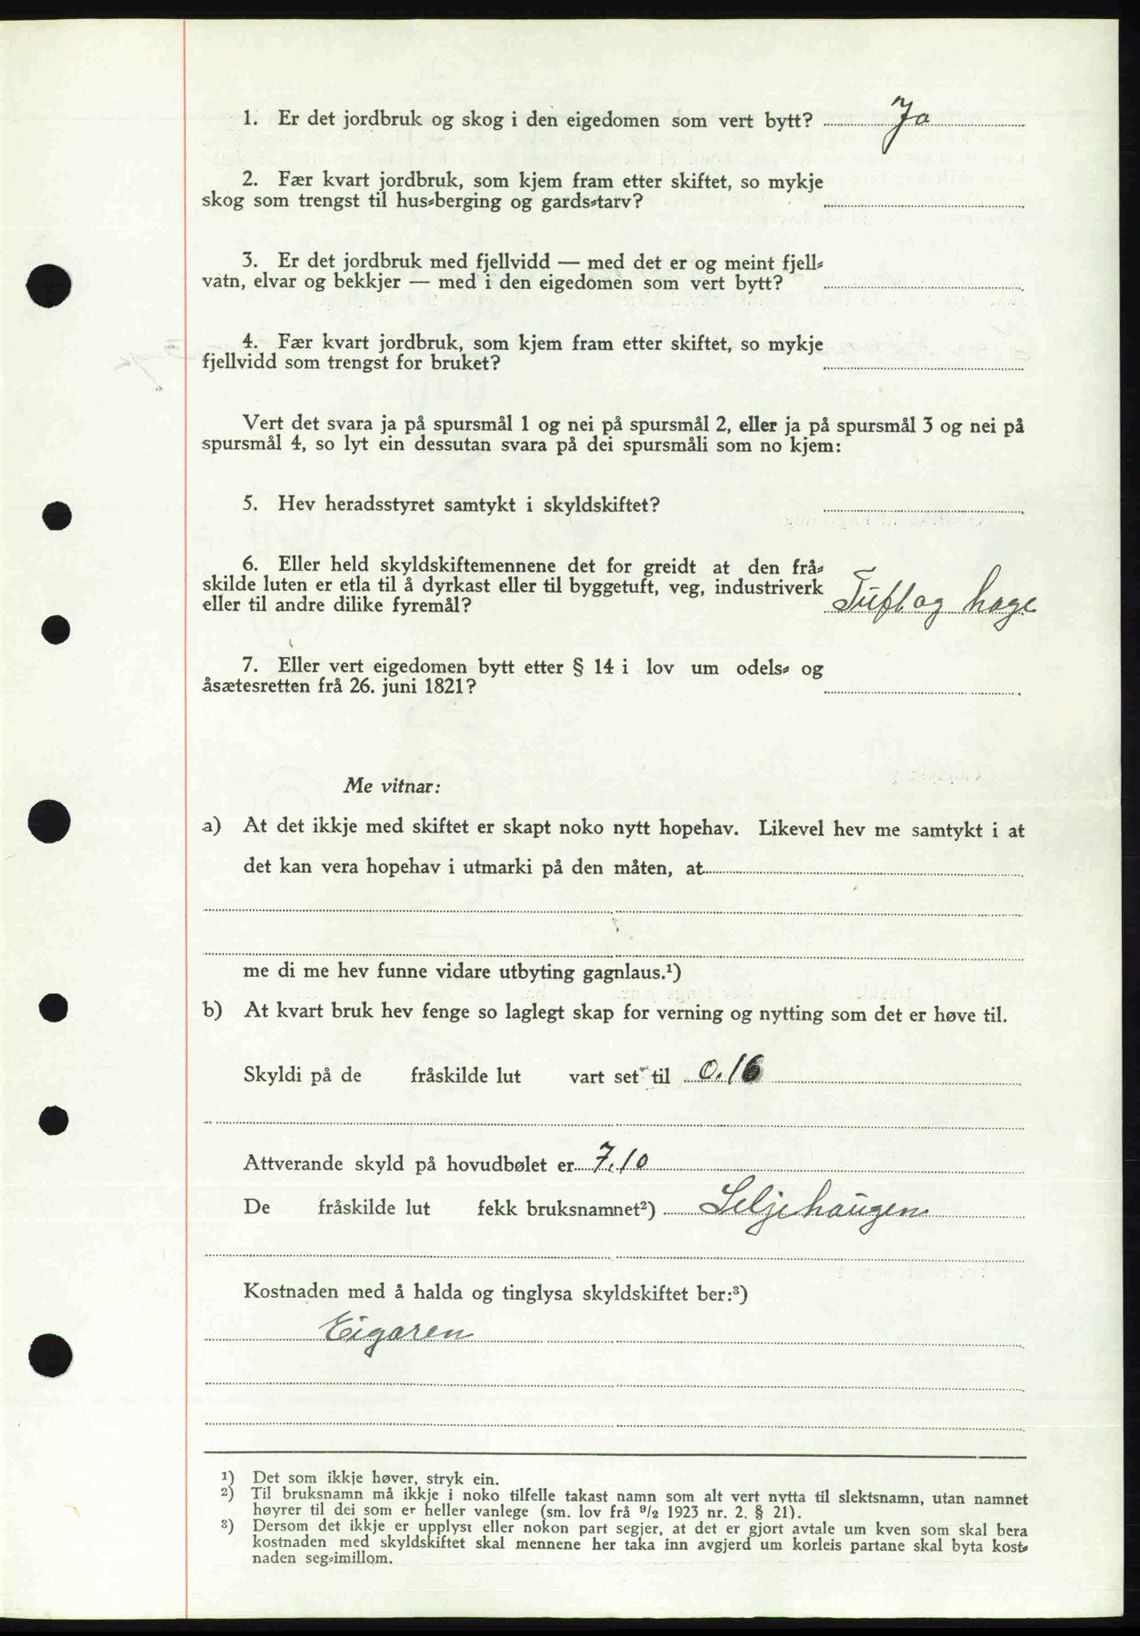 1. Er det jordbruk og skog i den eigedomen som vert bytt? Ja
2. Fær kvart jordbruk, som kjem fram etter skiftet, so mykje
skog som trengst til hus-berging og gards-tarv?
3. Er det jordbruk med fjellvidd — med det er og meint fjell-
vatn, elvar og bekkjer — med i den eigedomen som vert bytt?
4. Fær kvart jordbruk, som kjem fram etter skiftet, so mykje
fjellvidd som trengst for bruket?
Vert det svara ja på spursmål 1 og nei på spursmål 2, eller ja på spursmål 3 og nei på
spursmål 4, so lyt ein dessutan svara på dei spursmåli som no kjem:
5. Hev heradsstyret samtykt i skyldskiftet?
6. Eller held skyldskiftemennene det for greidt at den frå-
skilde luten er etla til å dyrkast eller til byggetuft, veg, industriverk
eller til andre dilike fyremål? Tuft og hage
7. Eller vert eigedomen bytt etter § 14 i lov um odels- og
åsætesretten frå 26. juni 1821?
Me vitnar:
a) At det ikkje med skiftet er skapt noko nytt hopehav. Likevel hev me samtykt i at
det kan vera hopehav i utmarki på den måten, at
me di me hev funne vidare utbyting gagnlaus.¹)
b) At kvart bruk hev fenge so laglegt skap for verning og nytting som det er høve til.
Skyldi på de fråskilde lut vart set til 0.16
Attverande skyld på hovudbølet er 7.10
De fråskilde lut fekk bruksnamnet²) Seljehaugen
Kostnaden med å halda og tinglysa skyldskiftet ber:³)
Eigaren
¹) Det som ikkje høver, stryk ein.
²) Til bruksnamn må ikkje i noko tilfelle takast namn som alt vert nytta til slektsnamn, utan namnet
høyrer til dei som er heller vanlege (sm. lov frå 9/2 1923 nr. 2. § 21).
³) Dersom det ikkje er upplyst eller nokon part segjer, at det er gjort avtale um kven som skal bera
kostnaden med skyldskiftet skal mennene her taka inn avgjerd um korleis partane skal byta kost-
naden seg-imillom.